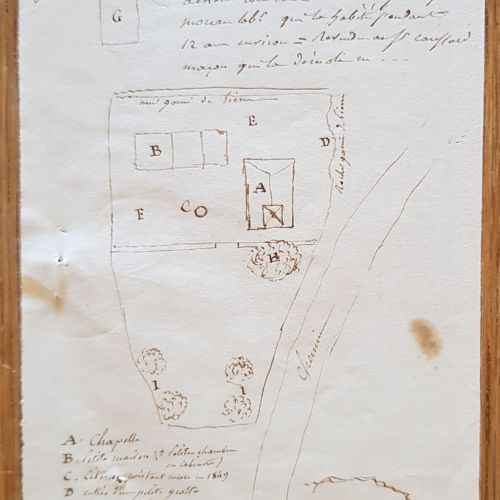 G
qui la habité pendant
12 ans environ =
maçon qui la démolie en ...
mur garni de lierre
E
B
D
Roche garnie de lierre
A
F
C
H
Chemin
I
I
A. Chapelle
B. Petite maison (3 petites chambres
ou cabinets)
C. Citerne existant encore en 1849
D entrée d'une petite grotte